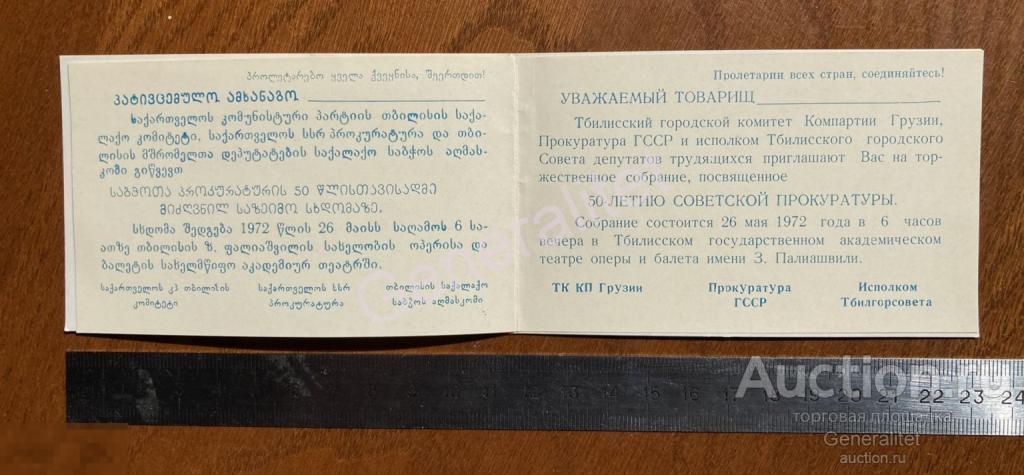 პროლეტარებო ყველა ქვეყნისა, შეერთდით!
პატივცემულო ამხანაგო
საქართველოს კომუნისტური პარტიის თბილისის საქა-
ლაქო კომიტეტი, საქართველოს სსრ პროკურატურა და თბი-
ლისის მშრომელთა დეპუტატების საქალაქო საბჭოს აღმას-
კომი გიწვევთ
საბჭოთა პროკურატურის 50 წლისთავისადმი
მიძღვნილ საზეიმო სხდომაზე.
სხდომა შედგება 1972 წლის 26 მაისს საღამოს 6 სა-
ათზე თბილისის ზ. ფალიაშვილის სახელობის ოპერისა და
ბალეტის სახელმწიფო აკადემიურ თეატრში.
საქართველოს კპ თბილისის
კომიტეტი
საქართველოს სსრ
პროკურატურა
თბილისის საქალაქო
საბჭოს აღმასკომი
Пролетарии всех стран, соединяйтесь!
УВАЖАЕМЫЙ ТОВАРИЩ
Тбилисский городской комитет Компартии Грузии,
Прокуратура ГССР и исполком Тбилисского городского
Совета депутатов трудящихся приглашают Вас на тор-
жественное собрание, посвященное
50-ЛЕТИЮ СОВЕТСКОЙ ПРОКУРАТУРЫ.
Собрание состоится 26 мая 1972 года в 6 часов
вечера в Тбилисском государственном академическом
театре оперы и балета имени З. Палиашвили.
ТК КП Грузии
Прокуратура
ГССР
Исполком
Тбилгорсовета
Generalitet
22 23 24
Auction.ru
торговая площадка
Generalitet
auction.ru